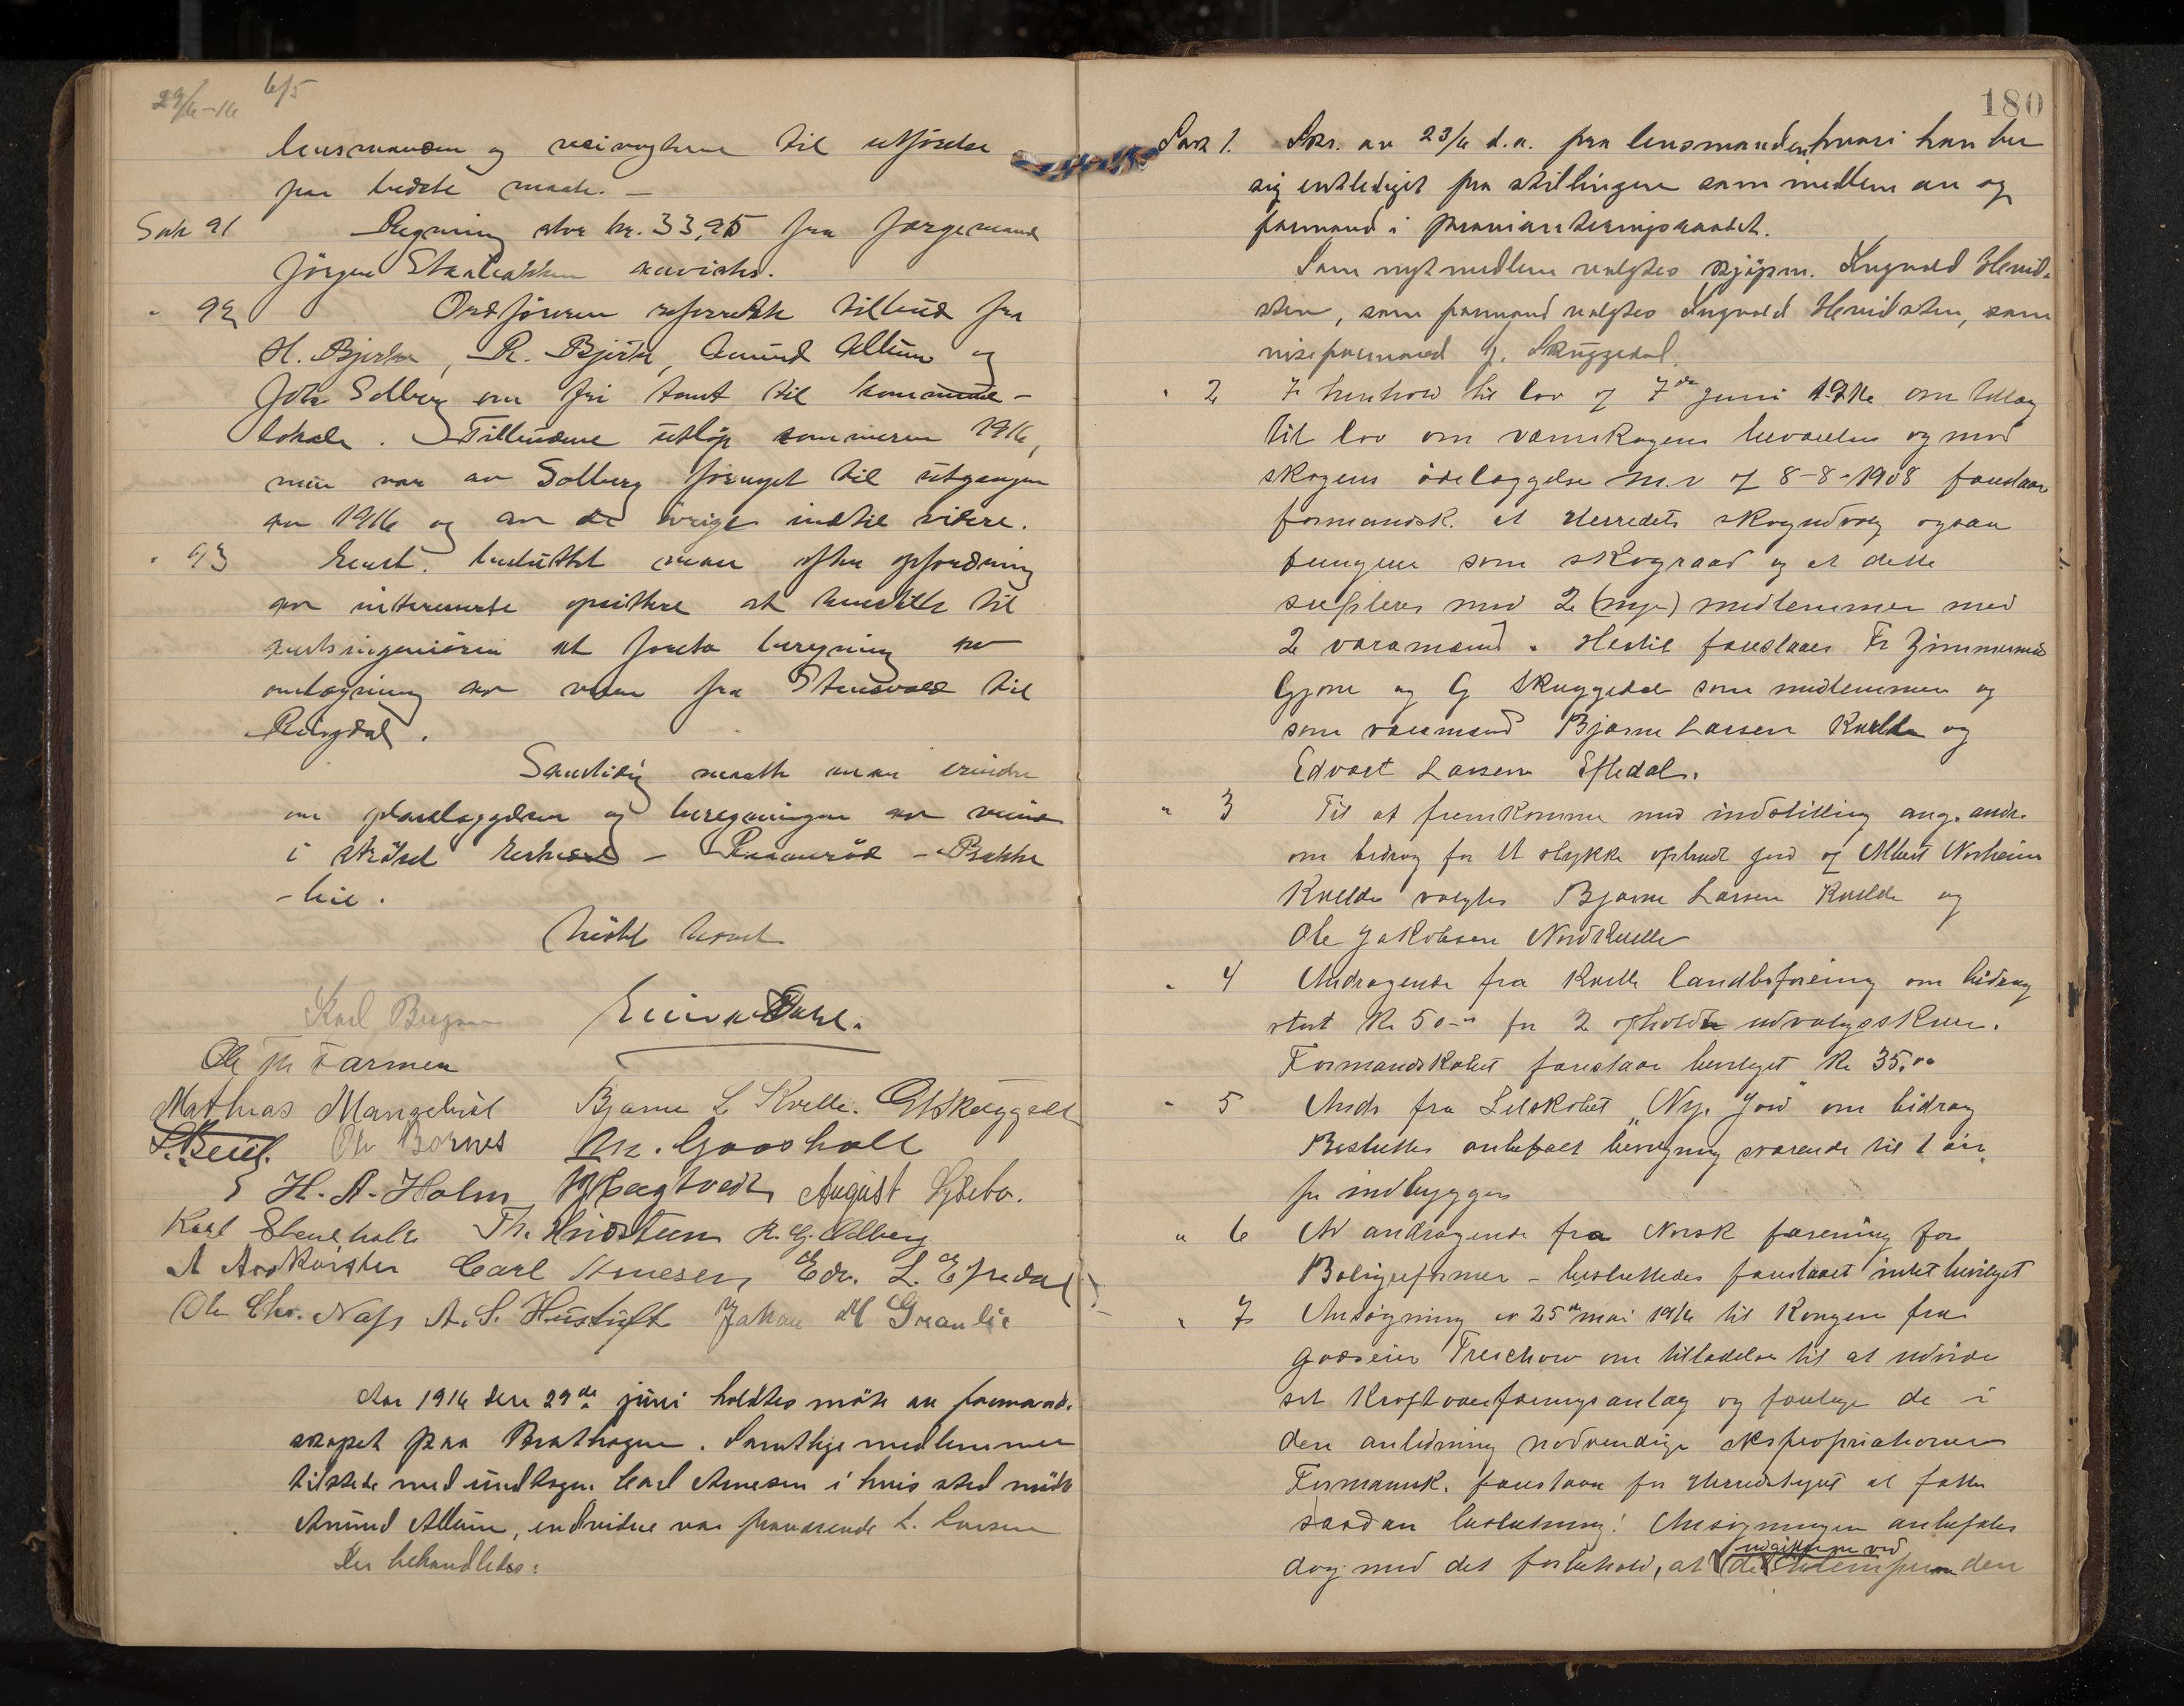 29/6-16 6/5
lensmanden og veivogterne til utførelse
paa bedste maate. –
Sak 91 Regning stor kr. 33,95 fra færgemand
Jørgen avvistes.
" 92 Ordføreren refererte tilbud fra
H. Bjerke, R. Bjerke, Amund Allum og
Johs Solberg om fri tomt til kommune-
lokale. Tilbudene utløp sommeren 1916,
men var av Solberg fornyet til utgangen
av 1916 og av de øvrige indtil videre.
" 93 Enst. besluttet man efter opfordring
av interesserte opsittere at henstille til
amtsingeniøren at foreta beregning av
omlægning av veien fra Stensvold til
Ringdal.
Samtidig maatte man erindre
om planlæggelsen og beregningen av veien
i strøket – – Bakke
-lie.
Møtet hævet
Einar Dahl.
Ole M Farmen
Mathias Bjarne L Kvelle. G Skuggedal
Ole Bornes M. Gaasholt
H. A. Holm August
Karl Stensholt Th. Hvidsteen R. G. Odberg
Carl Arnesen, Edv. L. Eftedal
Ole Chr. Næss A. S. Jakon M Granlie
Aar 1916 den 29de juni holdtes møte av formand-
skapet paa Brathagen. Samtlige medlemmer
tilstede med undtagen Carl Arnesen i hvis sted møtte
Amund Allum, endvidere var fraværende L. Larsen
Der behandledes:
180
Sak 1. Skr. av 23/6 d.a. fra lensmanden hvori han ber
sig entlediget fra stillingen som medlem av og
formand i provianteringsraadet.
Som nyt medlem valgtes kjøpm. Ingvald Hvid-
sten, som formand valgtes Ingvald Hvidsten, som
viseformand G. Skuggedal.
" 2 I henhold til lov af 7de juni 1916 om tillæg
til lov om værnskogens bevarelse og mod
skogens ødelæggelse m.v af 8-8-1908 foreslaar
formandsk. at Herredets skogudvalg ogsaa
fungerer som skograad og at dette
supleres med 2 (nye) medlemmer med
2 varamænd. Hertil foreslaaes Fr Zimmermann
Gjone og G Skuggedal som medlemmer og
som varamænd Bjarne Larsen Kvelde og
Edvart Larsen Eftedal.
" 3 Til at fremkomme med indstilling ang. andr.
om bidrag for et stykke opbrudt jord af Albert Norheim
Kvelde valgtes Bjarne Larsen Kvelde og
Ole Jakobsen Nordkvelle
" 4 Andragende fra Kvelle landboforening om bidrag
stort Kr 50-00 for 2 afholdte udvalgsskuer.
Formandskabet foreslaar bevilget Kr 35,00
" 5 Andr fra Selskabet "Ny Jord" om bidrag
Besluttes anbefalt bevilgning svarende til 1 øre
pr indbygger
" 6 Et andragende fra Norsk forening for
Boligreformer – besluttedes foreslaaet intet bevilget
" 7 Ansøgning av 25de mai 1916 til Kongen fra
godseier Treschow om tilladelse til at udvide
sit Kraftoverføringsanlæg og foretage de i
den anledning nødvendige ekspropriationer
Formannsk. foreslaar for Herredstyret at fatte
saadan beslutning: Ansøgningen anbefales
dog med det forbehold, at udgifterne ved den